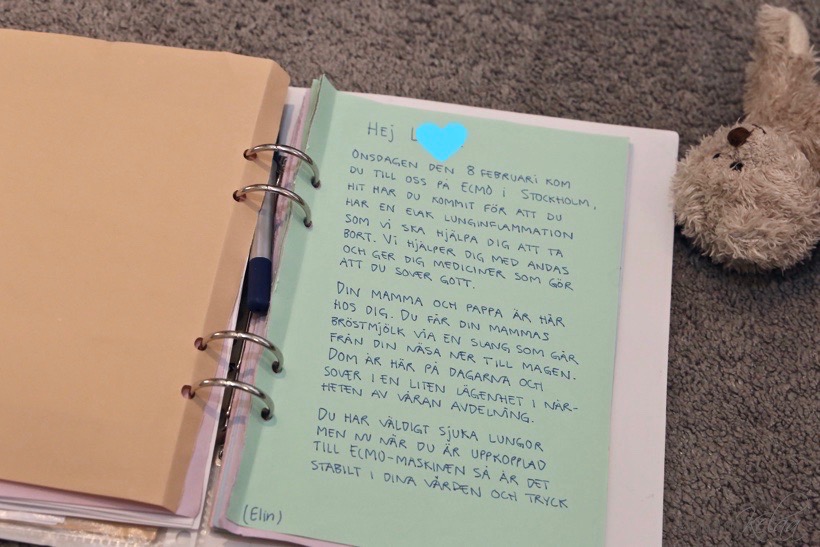 Hej L
ONSDAGEN DEN 8 FEBRUARI KOM
DU TILL OSS PÅ ECMO I STOCKHOLM,
HIT HAR DU KOMMIT FÖR ATT DU
HAR EN ELAK LUNGINFLAMMATION
SOM VI SKA HJÄLPA DIG ATT TA
BORT. VI HJÄLPER DIG MED ANDAS
OCH GER DIG MEDICINER SOM GÖR
ATT DU SOVER GOTT.
DIN MAMMA OCH PAPPA ÄR HÄR
HOS DIG. DU FÅR DIN MAMMAS
BRÖSTMJÖLK VIA EN SLANG SOM GÅR
FRÅN DIN NÄSA NER TILL MAGEN.
DOM ÄR HÄR PÅ DAGARNA OCH
SOVER I EN LITEN LÄGENHET I NÄR-
HETEN AV VÅRAN AVDELNING.
DU HAR VÄLDIGT SJUKA LUNGOR
MEN NU NÄR DU ÄR UPPKOPPLAD
TILL ECMO-MASKINEN SÅ ÄR DET
STABILT I DINA VÄRDEN OCH TRYCK
(Elin)